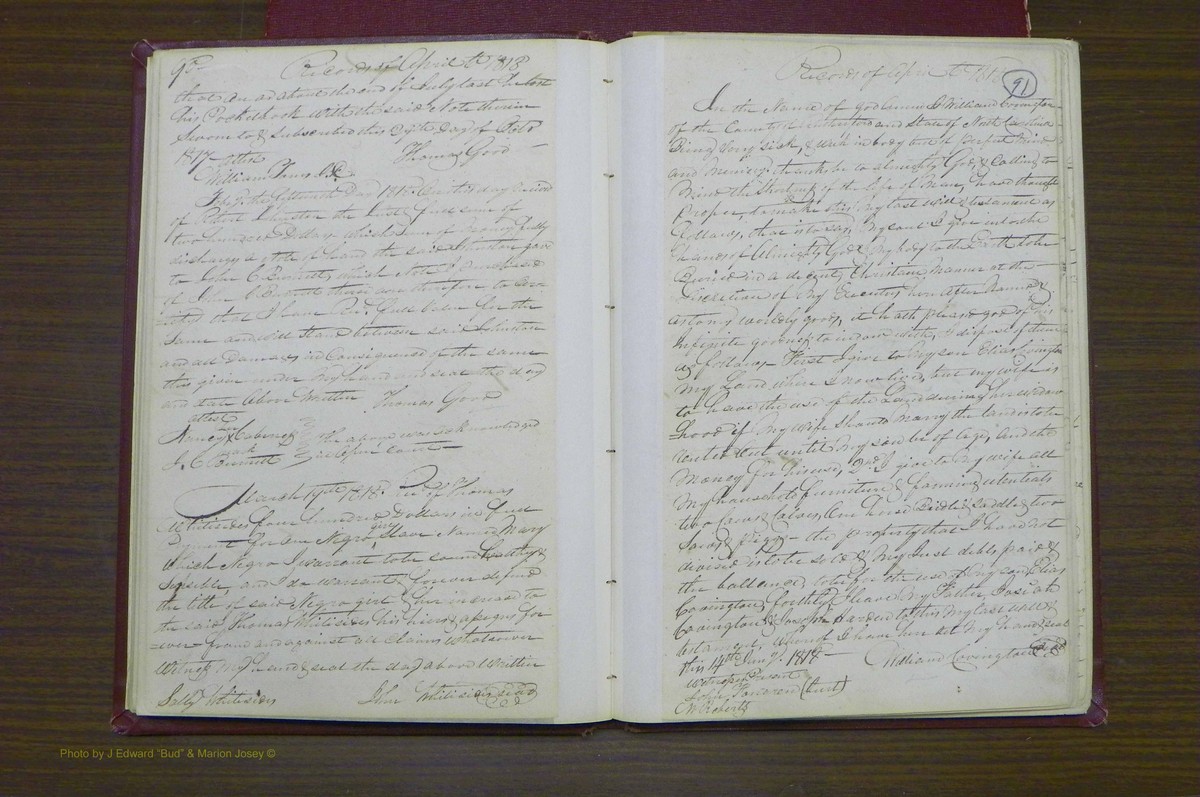 90 Records of April Tr 1818
that on or about the end of July last he lost
his Pocketbook with the said Note therein
Sworn to & Subscribed this Day of Octo
1817 Attest Thomas Good
William
1818 this day
of Robert Johnston the Just & full sum of
two hundred Dollars which sum of money fully
discharges a note of hand the said Johnston gave
to John C Burnett which Note I purchased
of John C Burnett these are therefore to
that I have for the
same and will stand between said Johnston
and all Damages in Consequence of the same
this given under my hand and seal the day
and date above Written Thomas Good
Attest
the above was acknowledged
J. C. Burnett in open court
March 1818 Recd of Thomas
Whitesides four hundred Dollars in full
payment for one Negro girl Slave Named Mary
which Negro I warrant to be sound healthy &
Sensible, and I do warrant & forever defend
the title of said Negro girl & her increase to
the said Thomas Whitesides his heirs & assigns for
ever from and against all Claims Whatsoever
Witness my hand & seal the day above Written
Sally Whitesides John Whitesides seal
Records of April Tr 181
91
In the Name of god amen I William Covington
of the County of Rutherford and State of North Carolina
Being very sick & weak in body but of perfect Mind
and Memory thanks be to almighty God, & Calling to
Mind the Shortness of the life of Man, have thought
proper to make this My last will & testament as
follows, that is to say, My soul I give into the
hands of Almighty God & My body to the Earth to be
Buried in a decent Christian Manner at the
discretion of My Executors hereafter Named
as to my worldly goods, it hath pleased god of his
infinite goodness to indow with, I dispose of them
as follows, First I give to My son Elias Covington
My Land where I now live, but my wife is
to have the use of the Land during her widow
hood if My wife should marry the land is to be
rented out until My son be of age, and the
Money for his use, 2nd I give to My wife all
My household furniture & farming utentials
two Cows & Calves, One horse Bridle & Saddle & two
Sows & Pigs - the property that I have not
devised is to be sold & My Just debts paid &
the ballance to be for the use of My son Elias
Covington, forthly I leave My Father Josiah
Covington & Harden to this My last will &
testament, whereof I have here set My hand & seal
this 14th Jany 1818 William Covington seal
Witness Present
John (Jurat)
W Roberts
Photo by J Edward "Bud" & Marion Josey ©